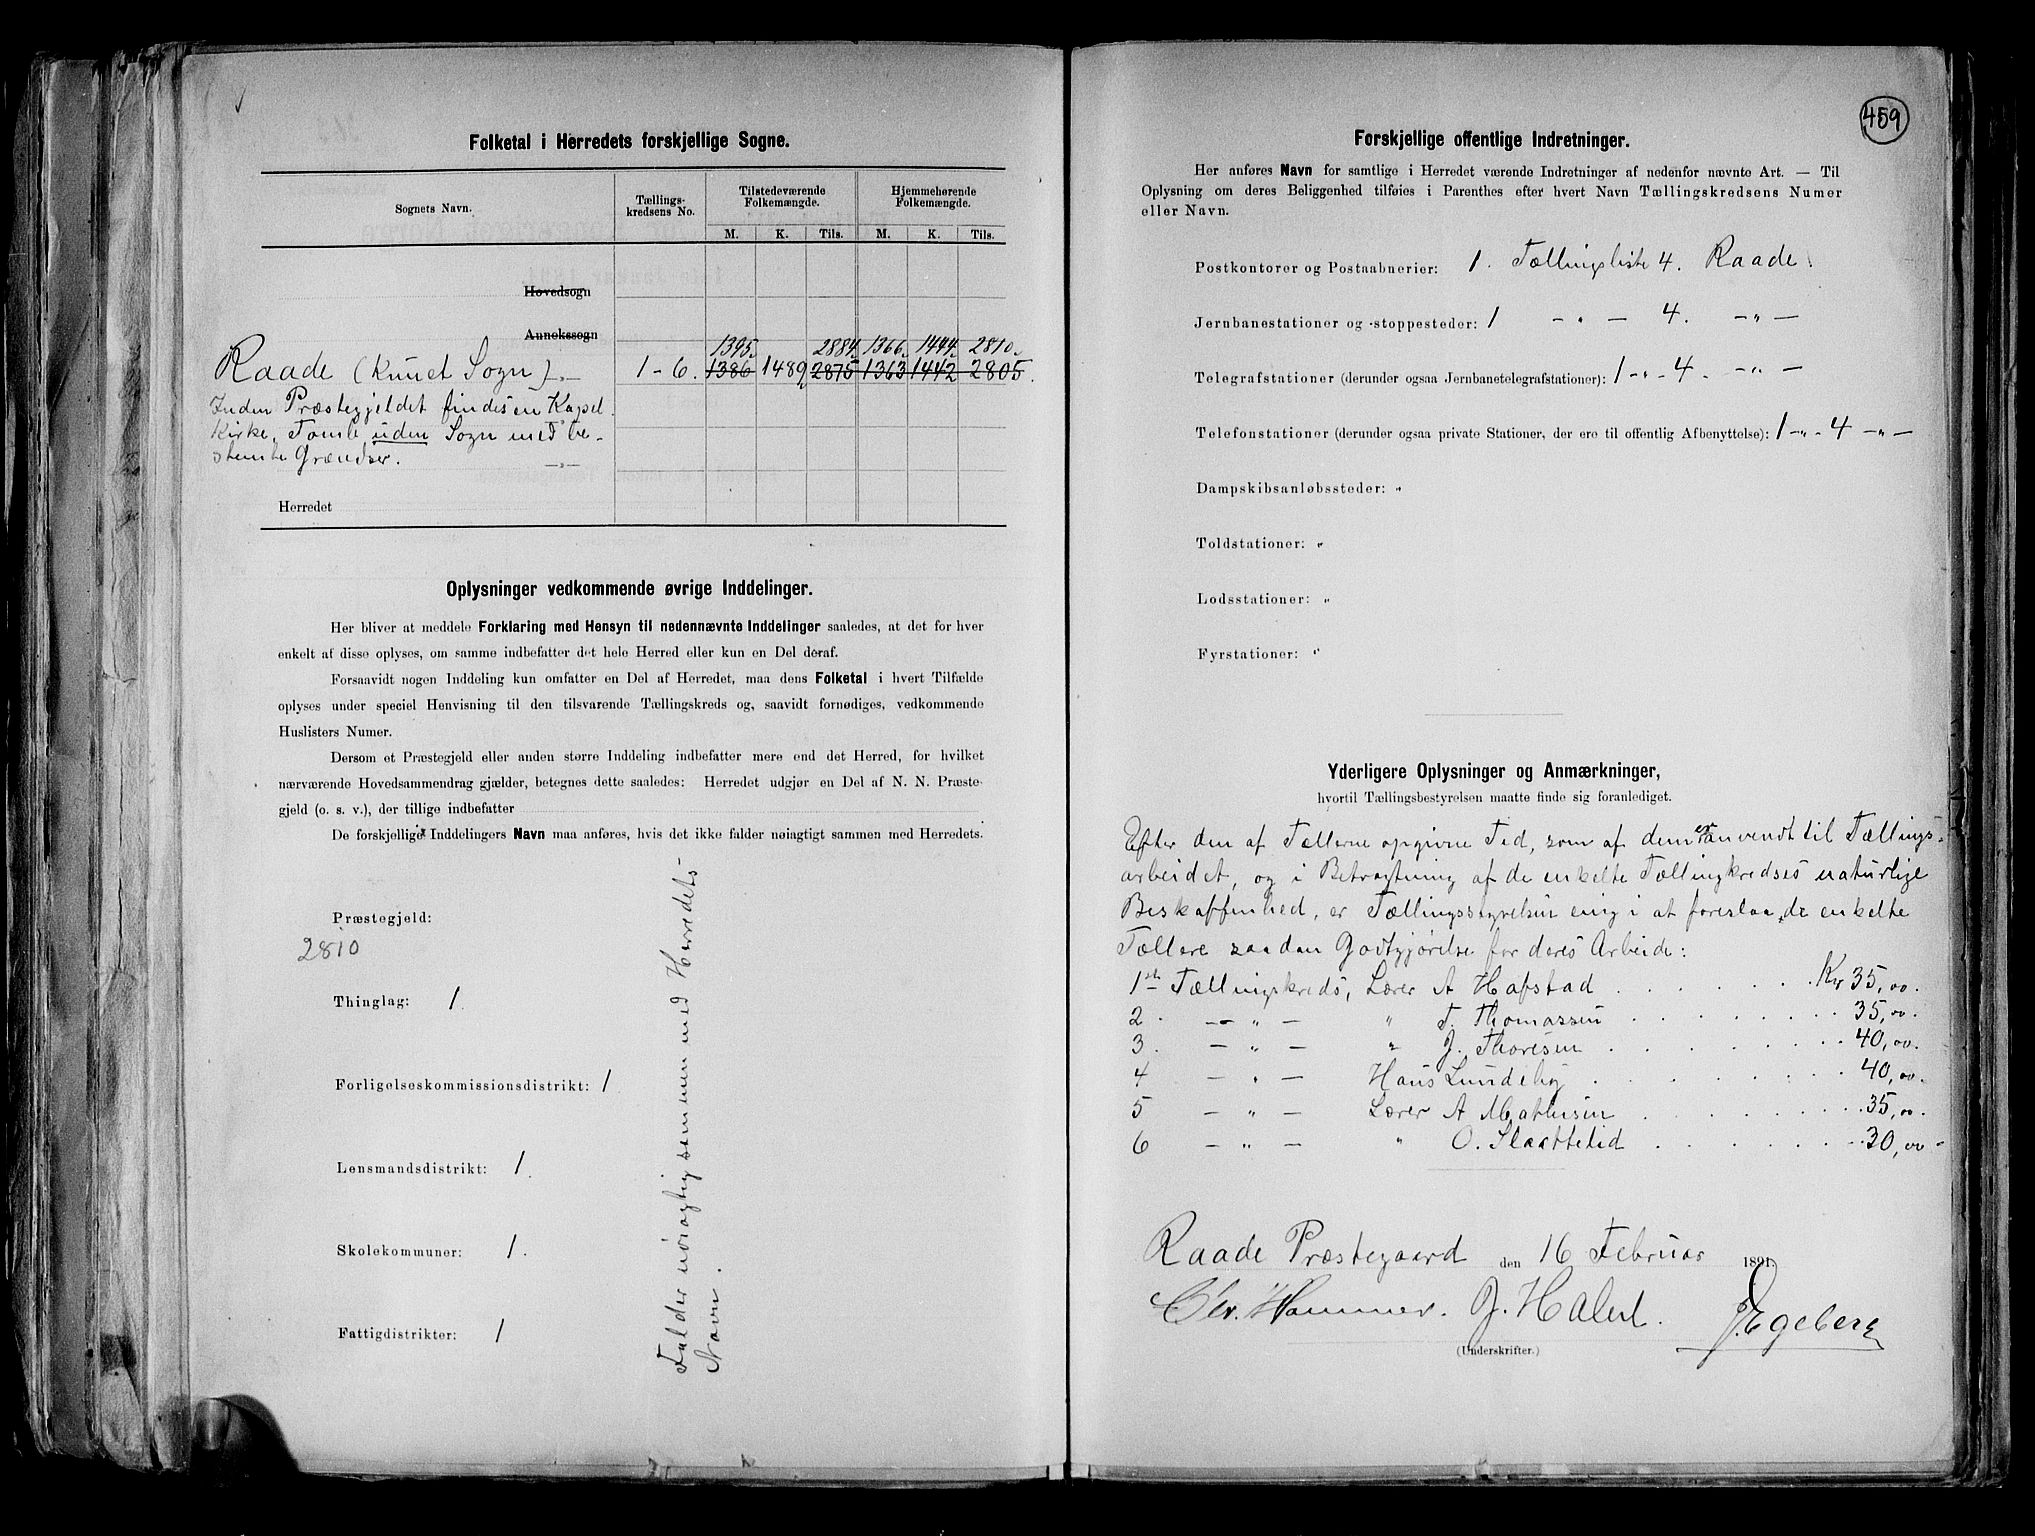 Folketal i Herredets forskjellige Sogne.
Sognets Navn.
Tællings-
kredsens No.
Tilstedeværende
Folkemængde.
Hjemmehørende
Folkemængde.
M. K. Tils. M. K. Tils.
Hovedsogn
Annekssogn
1395. 2884. 1366. 1444. 2810.
Raade (Kun et Sogn). 1-6. 1386 1489 2875 1363 1442 2805.
Inden Præstegjeldet findes en Kapel
Kirke, Tomb, uden Sogn med be-
stemte Grændser.
Herredet
Oplysninger vedkommende øvrige Inddelinger.
Her bliver at meddele Forklaring med Hensyn til nedennævnte Inddelinger saaledes, at det for hver
enkelt af disse oplyses, om samme indbefatter det hele Herred eller kun en Del deraf.
Forsaavidt nogen Inddeling kun omfatter en Del af Herredet, maa dens Folketal i hvert Tilfælde
oplyses under speciel Henvisning til den tilsvarende Tællingskreds og, saavidt fornødiges, vedkommende
Huslisters Numer.
Dersom et Præstegjeld eller anden større Inddeling indbefatter mere end det Herred, for hvilket
nærværende Hovedsammendrag gjælder, betegnes dette saaledes: Herredet udgjør en Del af N. N. Præste-
gjeld (o. s. v.), der tillige indbefatter
De forskjellige Inddelingers Navn maa anføres, hvis det ikke falder nøiagtigt sammen med Herredets.
Præstegjeld:
2810
Thinglag: 1.
Forligelseskommissionsdistrikt: 1
Lensmandsdistrikt: 1.
Skolekommuner: 1.
Fattigdistrikter: 1
Falder nøiagtig sammen med Herredets
Navn.
459
Forskjellige offentlige Indretninger.
Her anføres Navn for samtlige i Herredet værende Indretninger af nedenfor nævnte Art. — Til
Oplysning om deres Beliggenhed tilføies i Parenthes efter hvert Navn Tællingskredsens Numer
eller Navn.
Postkontorer og Postaabnerier: 1. Tællingsliste 4. Raade.
Jernbanestationer og -stoppesteder: 1 — „ — 4. — „ —
Telegrafstationer (derunder ogsaa Jernbanetelegrafstationer): 1 - „ - 4 — „ —
Telefonstationer (derunder ogsaa private Stationer, der ere til offentlig Afbenyttelse): 1 - „ - 4 — „ —
Dampskibsanløbssteder: „
Toldstationer: „
Lodsstationer: „
Fyrstationer: „
Yderligere Oplysninger og Anmærkninger,
hvortil Tællingsbestyrelsen maatte finde sig foranlediget.
Efter den af Tællerne opgivne Tid, som af dem er anvendt til Tællings-
arbeidet, og i Betragtning af de enkelte Tællingkredses naturlige
Beskaffenhed, er Tællingsstyrelsen enig i at foreslaa de enkelte
Tællere saadan Godtgjørelse for deres Arbeide:
1ste Tællingskreds, Lærer A Hafstad . . . Kr 35,00.
2. — „ — „ T. Thomassen . . . 35,00.
3. — „ — „ J. Thoresen . . . 40,00.
4 — „ — Hans Lundeby . . . 40,00.
5 — „ — Lærer A Mathisen . . . 35,00.
6 — „ — „ O. Slaattelid . . . 30,00
Raade Præstegaard den 16 Februar 1891.
Chr. Hammer. J. Egeberg
(Underskrifter.)